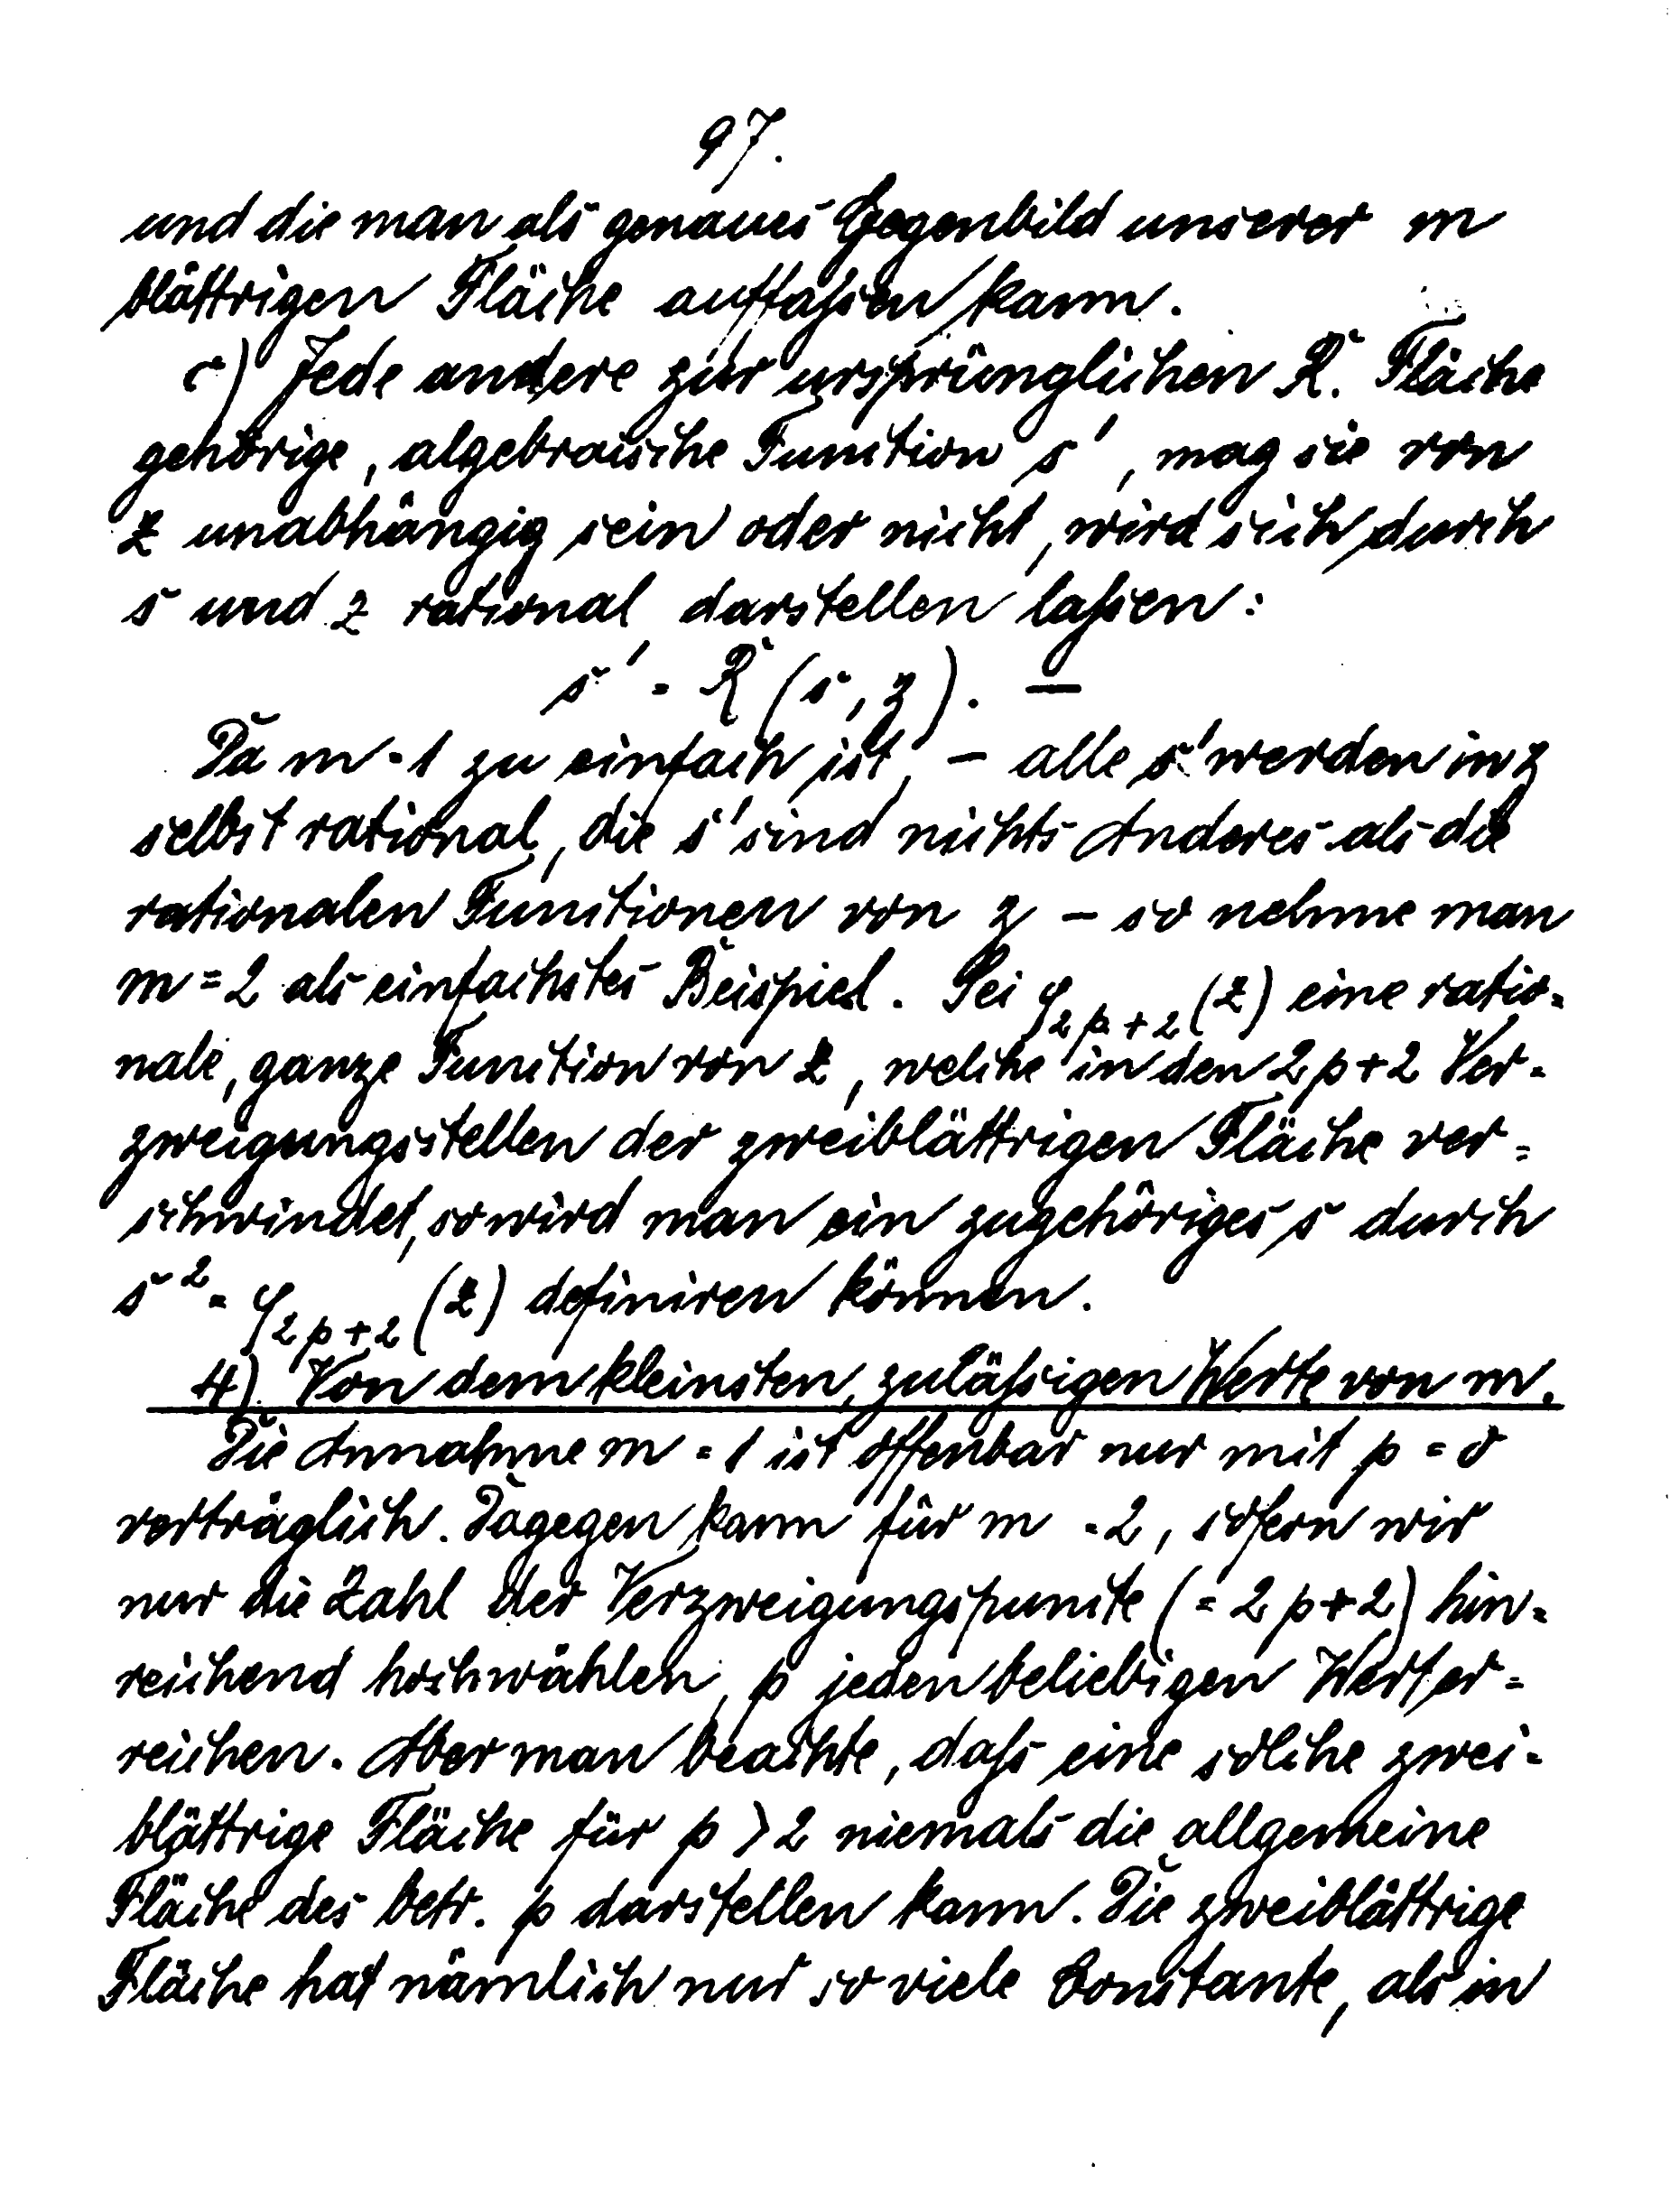 97.
und die man als genaues Gegenbild unserer m
blättrigen Fläche auffaſsen kann.
c) Jede andere zur ursprünglichen R. Fläche
gehörige, algebraische Function s', mag sie von
z unabhängig sein oder nicht, wird sich durch
s und z rational darstellen laſsen:
s' = R (s, z). —
Da m = 1 zu einfach ist, – alle s' werden in z
selbst rational, die s' sind nichts Anderes als die
rationalen Functionen von z – so nehme man
m = 2 als einfachstes Beispiel. Sei φ₂ₚ₊₂(z) eine ratio=
nale, ganze Function von z, welche in den 2p+2 Ver=
zweigungsstellen der zweiblättrigen Fläche ver=
schwindet, so wird man ein zugehöriges s durch
s² = φ₂ₚ₊₂(z) definiren können.
4) Von dem kleinsten, zuläſsigen Werte von m.
Die Annahme m = 1 ist offenbar nur mit p = 0
verträglich. Dagegen kann für m = 2, sofern wir
nur die Zahl der Verzweigungspuncte (= 2p+2) hin=
reichend hochwählen, p jeden beliebigen Wert er=
reichen. Aber man beachte, daſs eine solche zwei=
blättrige Fläche für p > 2 niemals die allgemeine
Fläche des betr. p darstellen kann. Die zweiblättrige
Fläche hat nämlich nur so viele Constante, als in